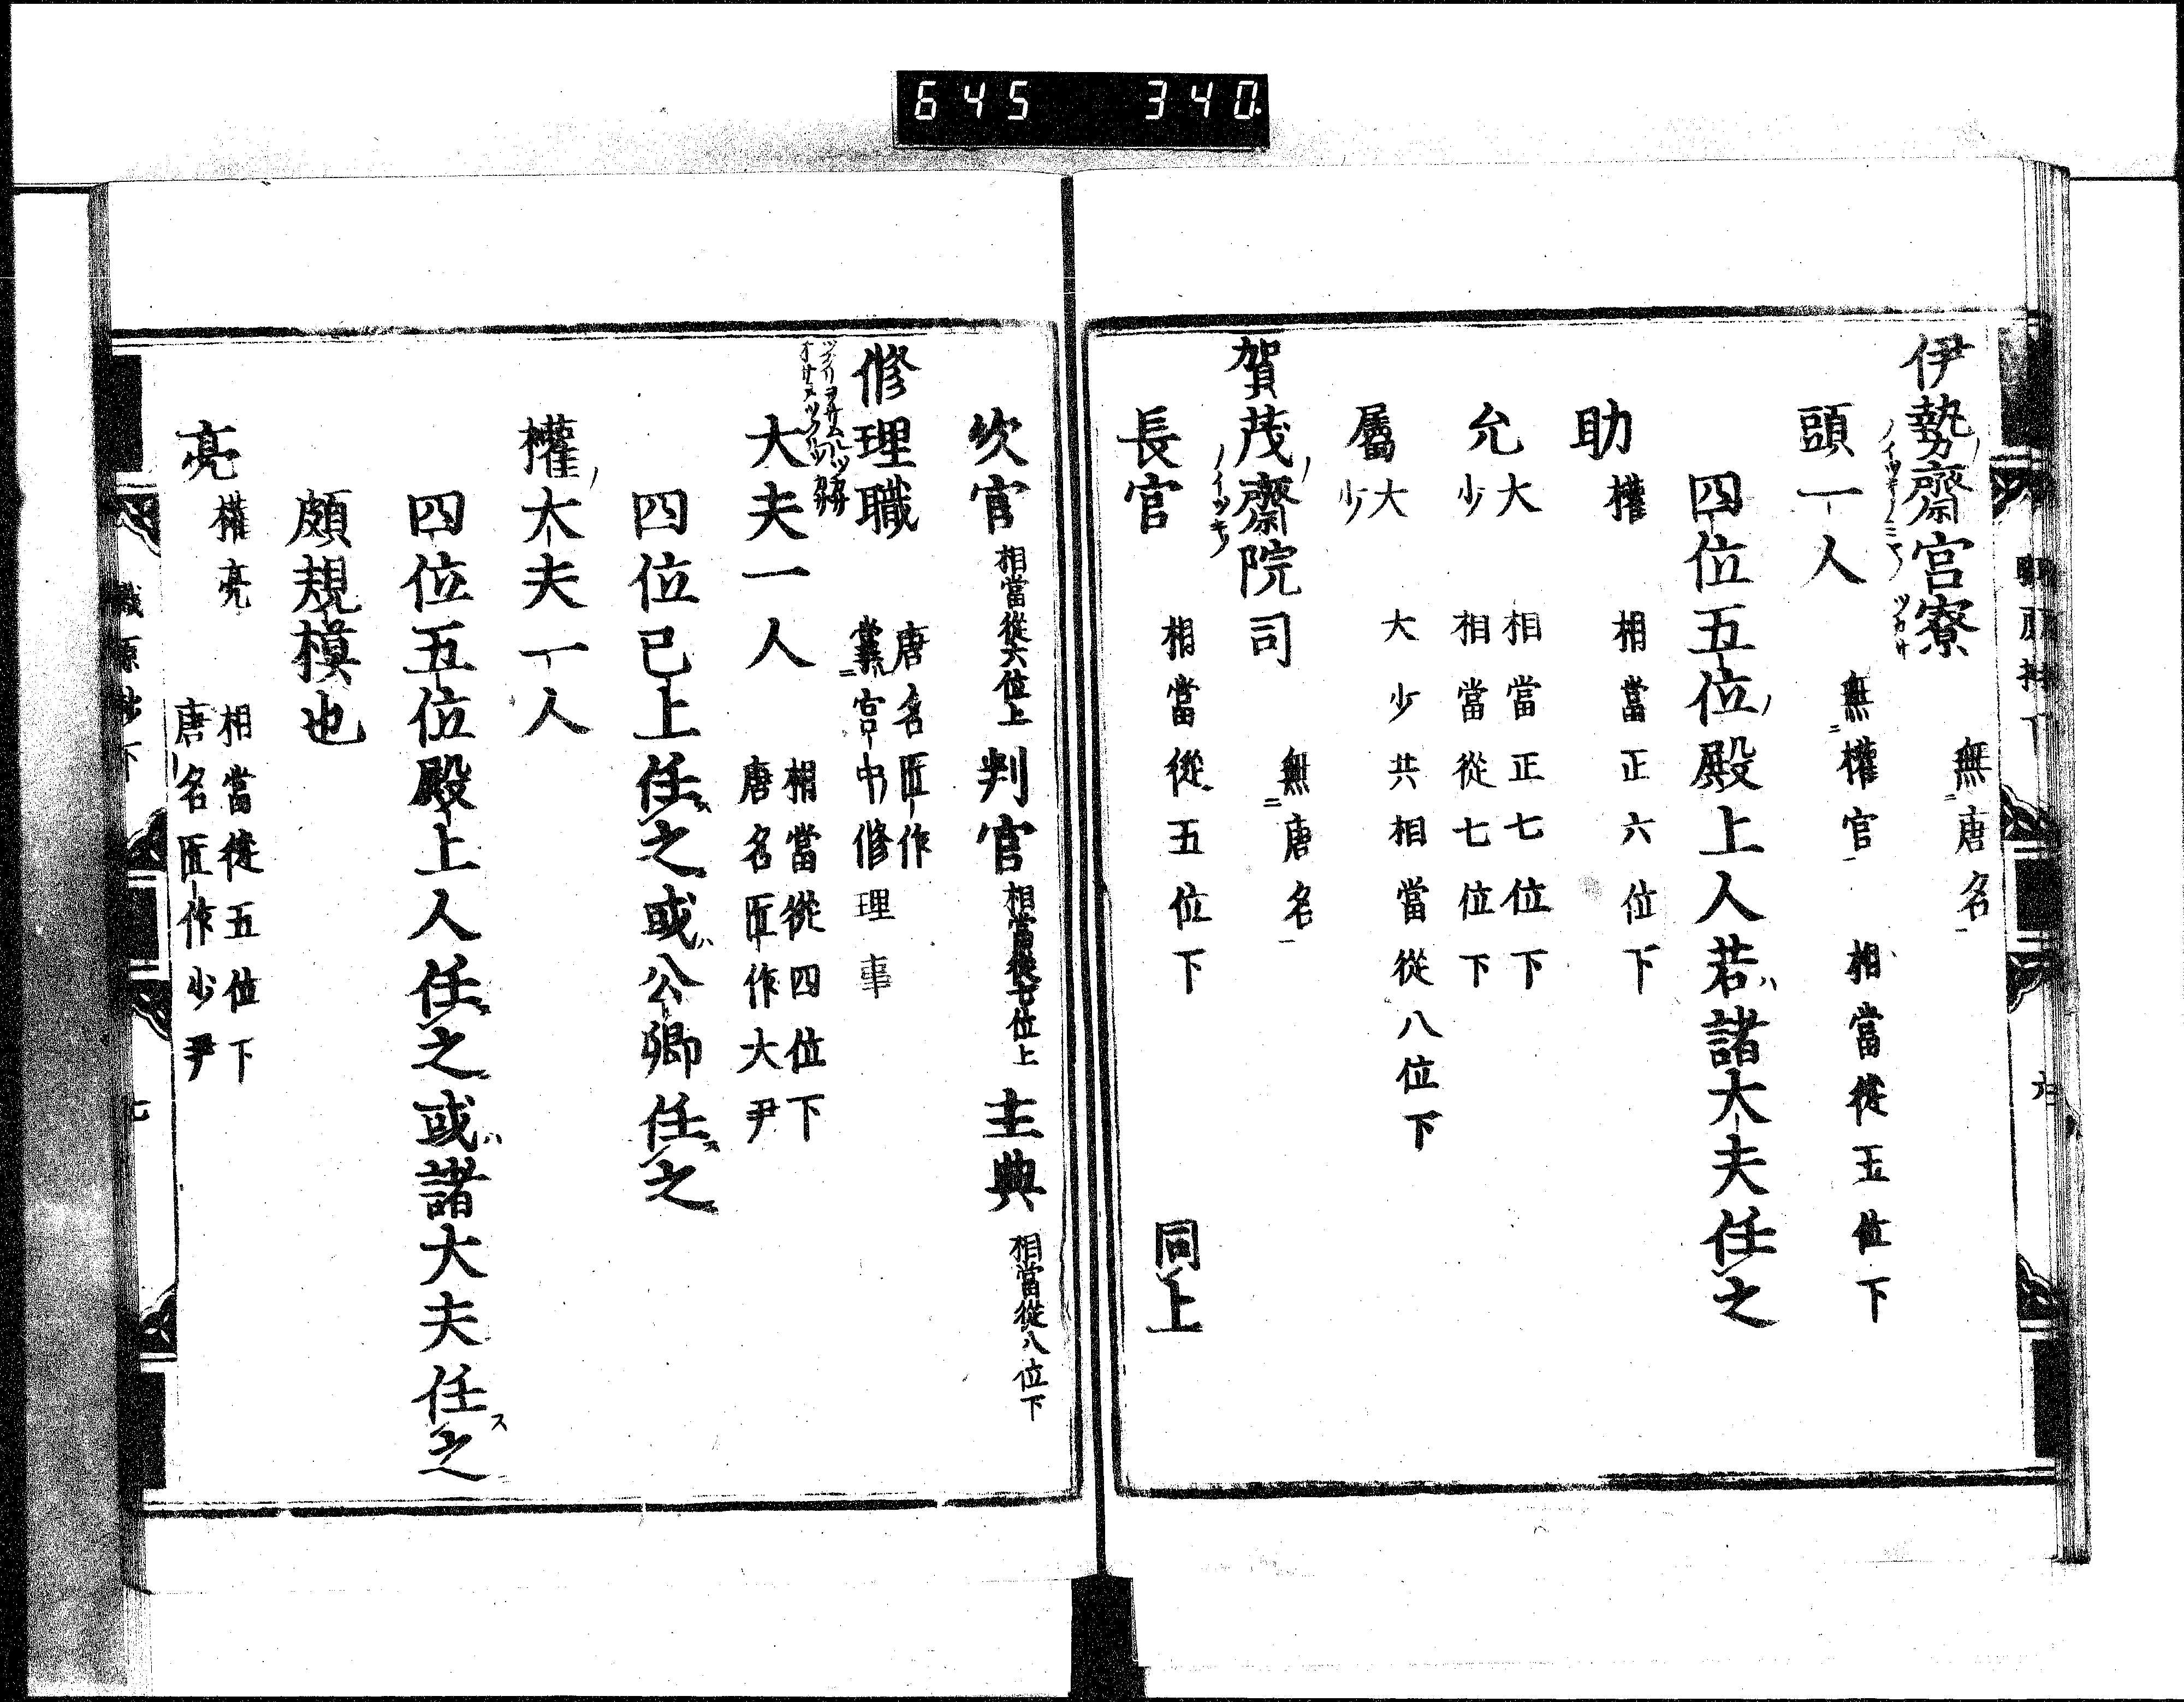 645 340.
伊勢齋宮寮 無唐名
頭一人 無權官 相當從五位下
四位五位殿上人若諸大夫任之
助 權 相當正六位下
允 大 相當正七位下
少 相當從七位下
屬 大少 大少共相當從八位下
賀茂齋院司 無唐名
長官 相當從五位下 同上
次官 相當從六位上 判官 相當從七位上 主典 相當從八位下
修理職 唐名匠作
掌宮中修理事
大夫一人 相當從四位下
唐名匠作大尹
四位已上任之或公卿任之
權大夫一人
四位五位殿上人任之或諸大夫任之
頗規模也
亮 權亮 相當從五位下
唐名匠作少尹
職原抄下 七